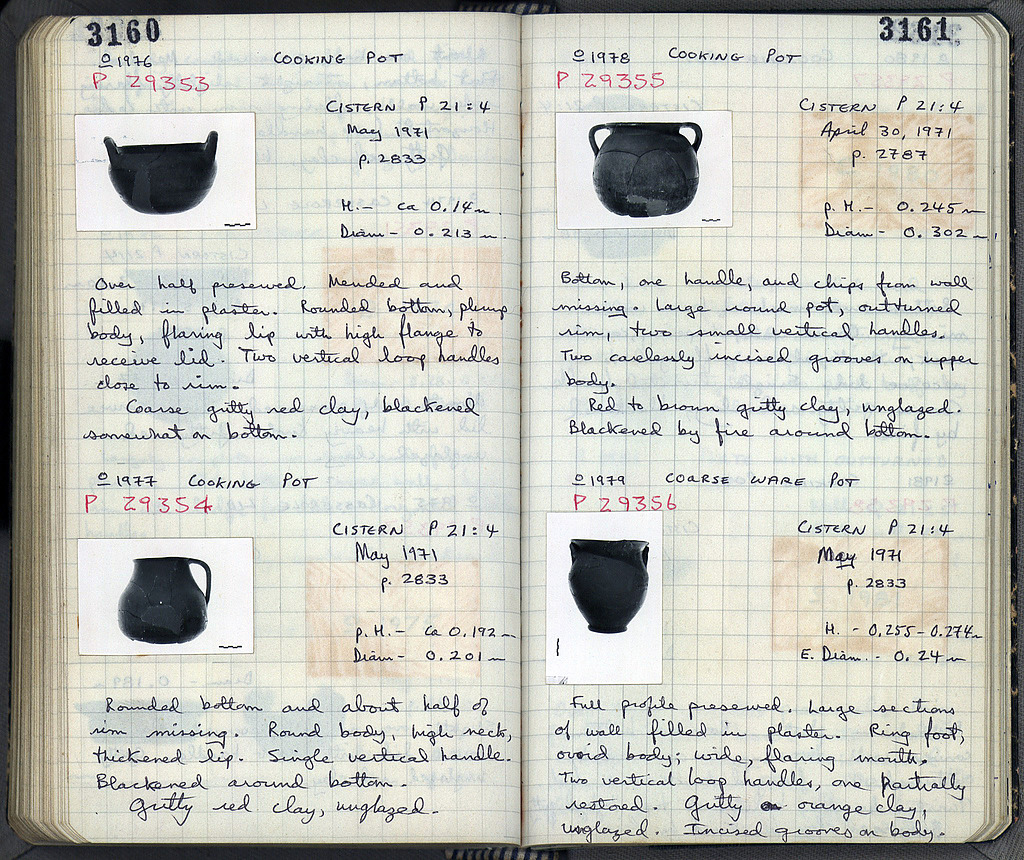 3160
O 1976 COOKING POT
P 29353
CISTERN P 21:4
May 1971
p. 2833
H.- ca 0.14 m.
Diam- 0.213 m.
Over half preserved. Mended and
filled in plaster. Rounded bottom, plump
body, flaring lip with high flange to
receive lid. Two vertical loop handles
close to rim.
Coarse gritty red clay, blackened
somewhat on bottom.
O 1977 COOKING POT
P 29354
CISTERN P 21:4
May 1971
p. 2833
p. H.- ca 0.192 m
Diam- 0.201 m
Rounded bottom and about half of
rim missing. Round body, high neck,
thickened lip. Single vertical handle.
Blackened around bottom.
Gritty red clay, unglazed.
3161
O 1978 COOKING POT
P 29355
CISTERN P 21:4
April 30, 1971
p. 2787
p. H.- 0.245 m
Diam- 0.302 m.
Bottom, one handle, and chips from wall
missing. Large round pot, outturned
rim, two small vertical handles.
Two carelessly incised grooves on upper
body.
Red to brown gritty clay, unglazed.
Blackened by fire around bottom.
O 1979 COARSE WARE POT
P 29356
CISTERN P 21:4
May 1971
p. 2833
H. - 0.255-0.274 m
E. Diam. - 0.24 m
Full profile preserved. Large sections
of wall filled in plaster. Ring foot,
ovoid body; wide, flaring mouth.
Two vertical loop handles, one partially
restored. Gritty orange clay,
unglazed. Incised grooves on body.